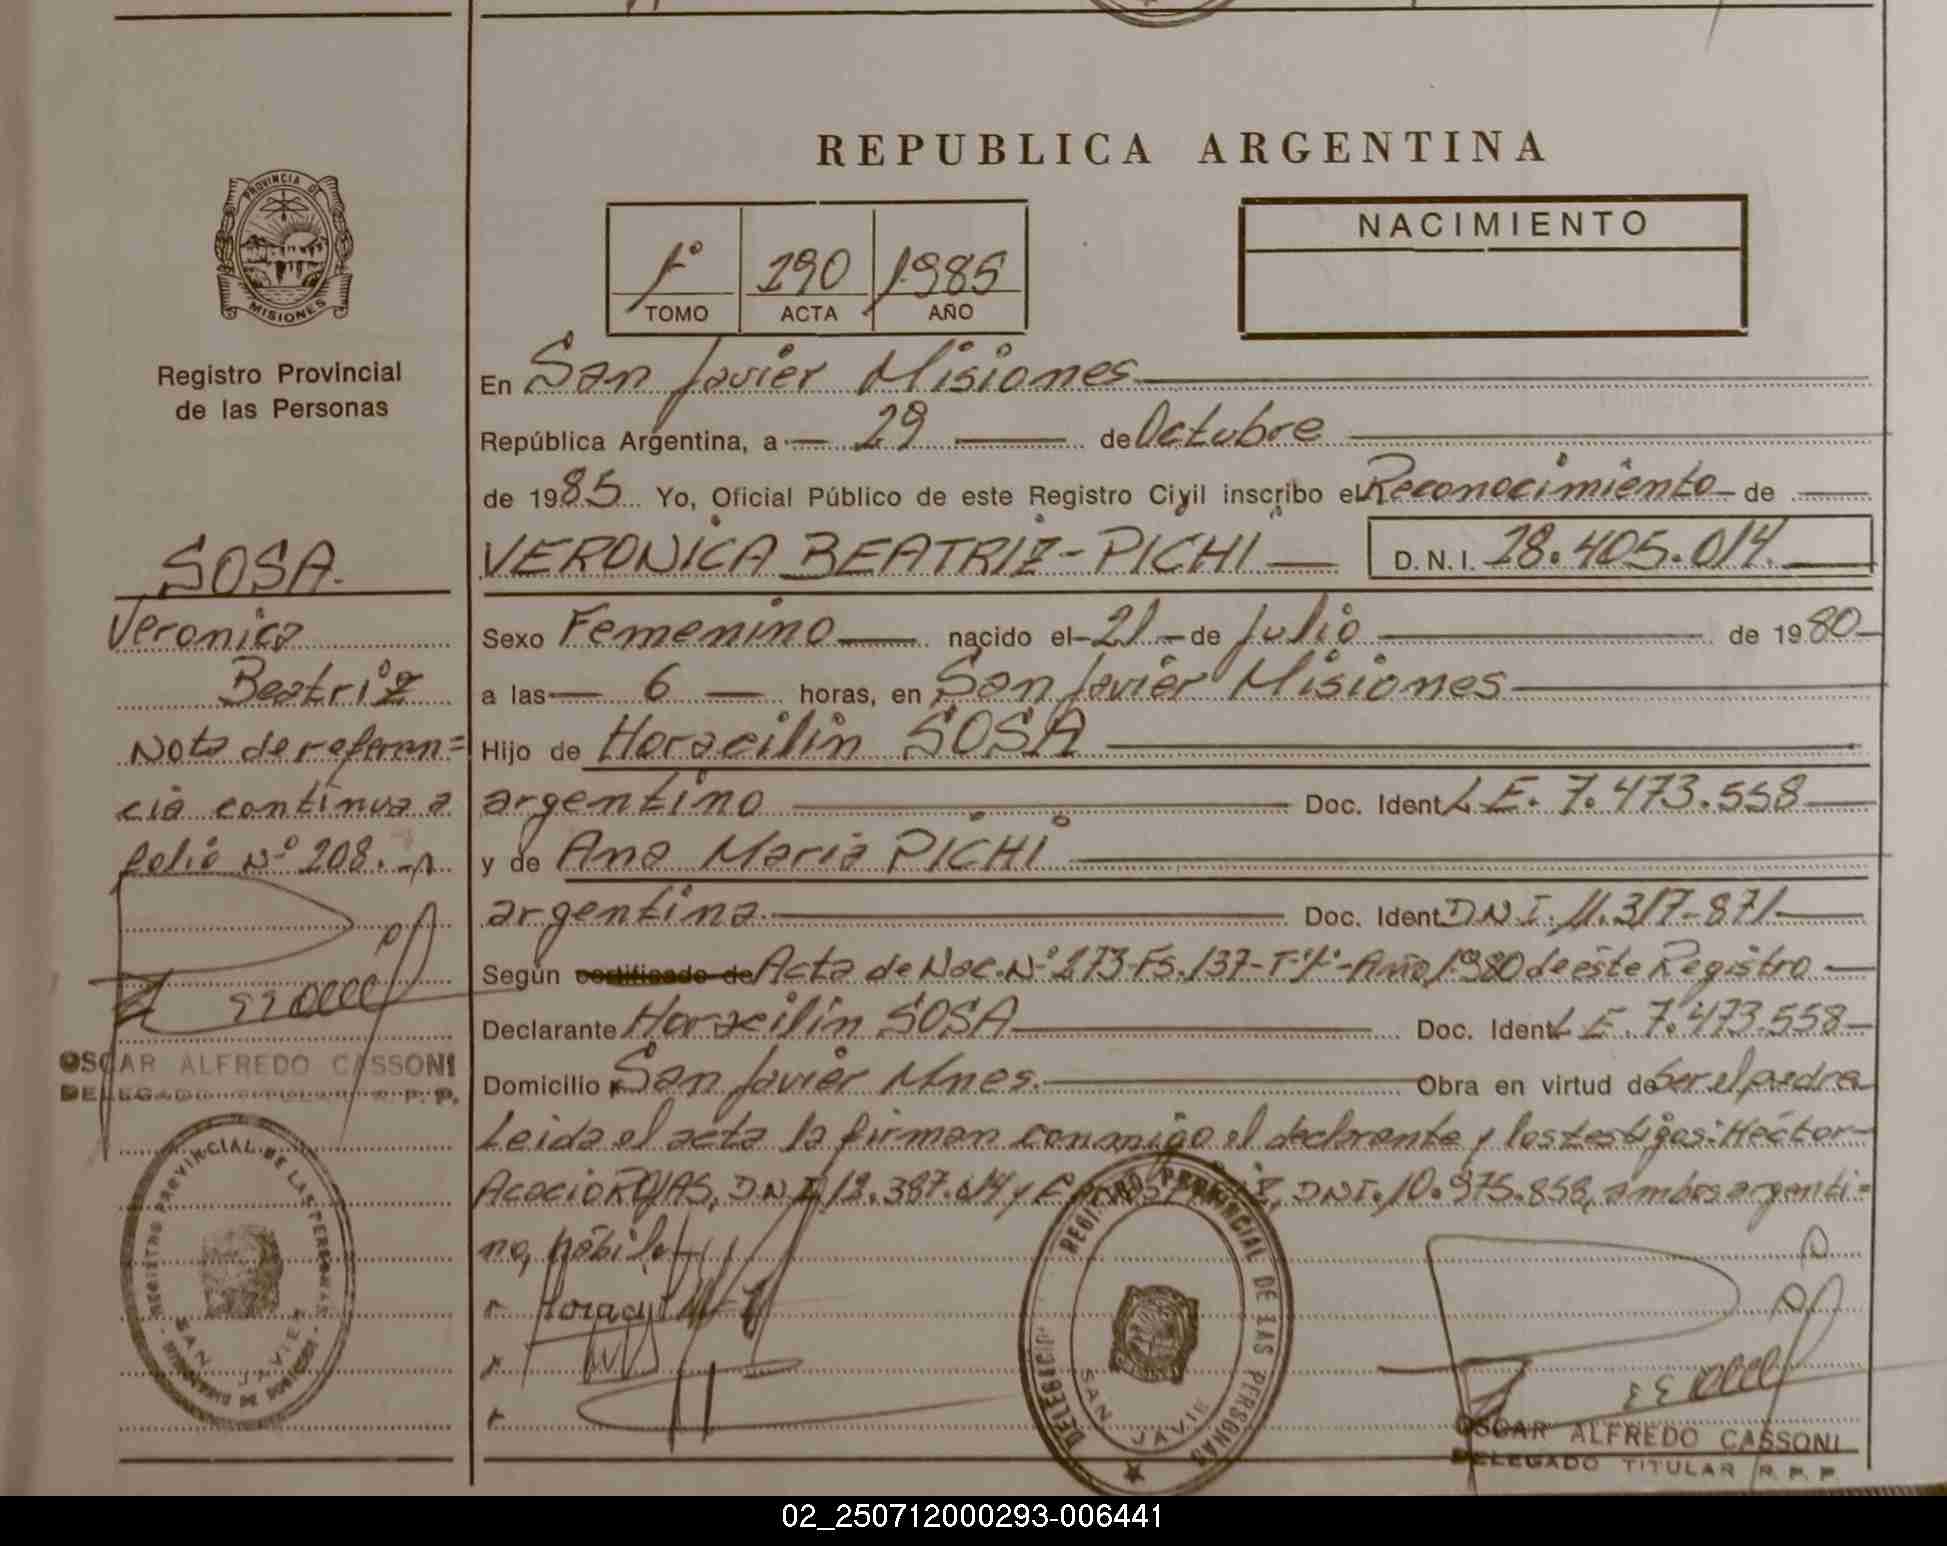 REPUBLICA ARGENTINA
PROVINCIA DE
MISIONES
Registro Provincial
de las Personas
1° 290 1985
TOMO ACTA AÑO
NACIMIENTO
SOSA
Veronica
Beatriz
Nota de referen=
cia continua a
folio N° 208.
OSCAR ALFREDO CASSONI
DELEGADO TITULAR R. P. P.
REGISTRO PROVINCIAL DE LAS PERSONAS
SAN JAVIER
En San Javier Misiones
República Argentina, a 29 de Octubre
de 1985 Yo, Oficial Público de este Registro Civil inscribo el Reconocimiento de
VERONICA BEATRIZ-PICHI D.N.I. 28.405.014.
Sexo Femenino nacido el 21 de Julio de 1980
a las 6 horas, en San Javier Misiones
Hijo de Horacilin SOSA
argentino Doc. Ident L.E. 7.473.558
y de Ana Maria PICHI
argentina. Doc. Ident D.N.I. 11.317.871
Según certificado de Acta de Nac. N° 273-Fs.137-T°1°-Año 1980 de este Registro
Declarante Horacilin SOSA Doc. Ident L.E. 7.473.558
Domicilio San Javier Mnes. Obra en virtud de Ser el padre
Leida el acta la firman conmigo el declarante y los testigos: Héctor
Acacio ROJAS, D.N.I. 12.387.614 y DNI. 10.975.858, ambos argenti=
no, hábiles
REGISTRO PROVINCIAL DE LAS PERSONAS
SAN JAVIER
OSCAR ALFREDO CASSONI
DELEGADO TITULAR R. P. P.
02_250712000293-006441